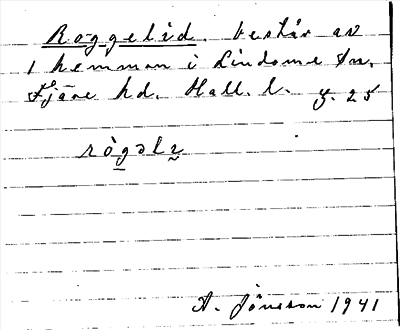 Roggelid. består av
1 hemman i Lindome sn,
Fjäre hd. Hall. l. g. 25
rògəlɪ
A. Jönsson 1941